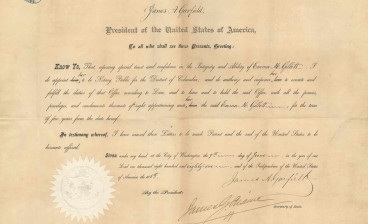 James A. Garfield,
President of the United States of America,
To all who shall see these Presents, Greeting:
Know Ye, That reposing special trust and confidence in the Integrity and Ability of Emma M. Gillett I
do appoint her to be Notary Public for the District of Columbia, and do authorize and empower her to execute and
fulfil the duties of that Office according to Law, and to have and to hold the said Office, with all the powers,
privileges, and emoluments thereunto of right appertaining unto her the said Emma M. Gillett for the term
of five years from the date hereof.
In testimony whereof, I have caused these Letters to be made Patent and the seal of the United States to be
hereunto affixed.
Given under my hand, at the City of Washington, the day of June in the year of our
Lord one thousand eight hundred and eighty-one and of the Independence of the United States
of America the
James A. Garfield
By the President:
James G. Blaine
Secretary of State.